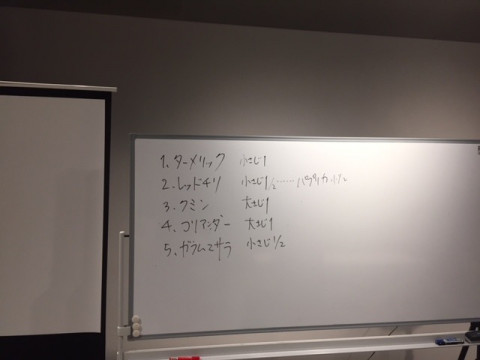 1. ターメリック 小さじ1
2. レッドチリ 小さじ1/2……パプリカ 小1/2
3. クミン 大さじ1
4. コリアンダー 大さじ1
5. ガラムマサラ 小さじ1/2